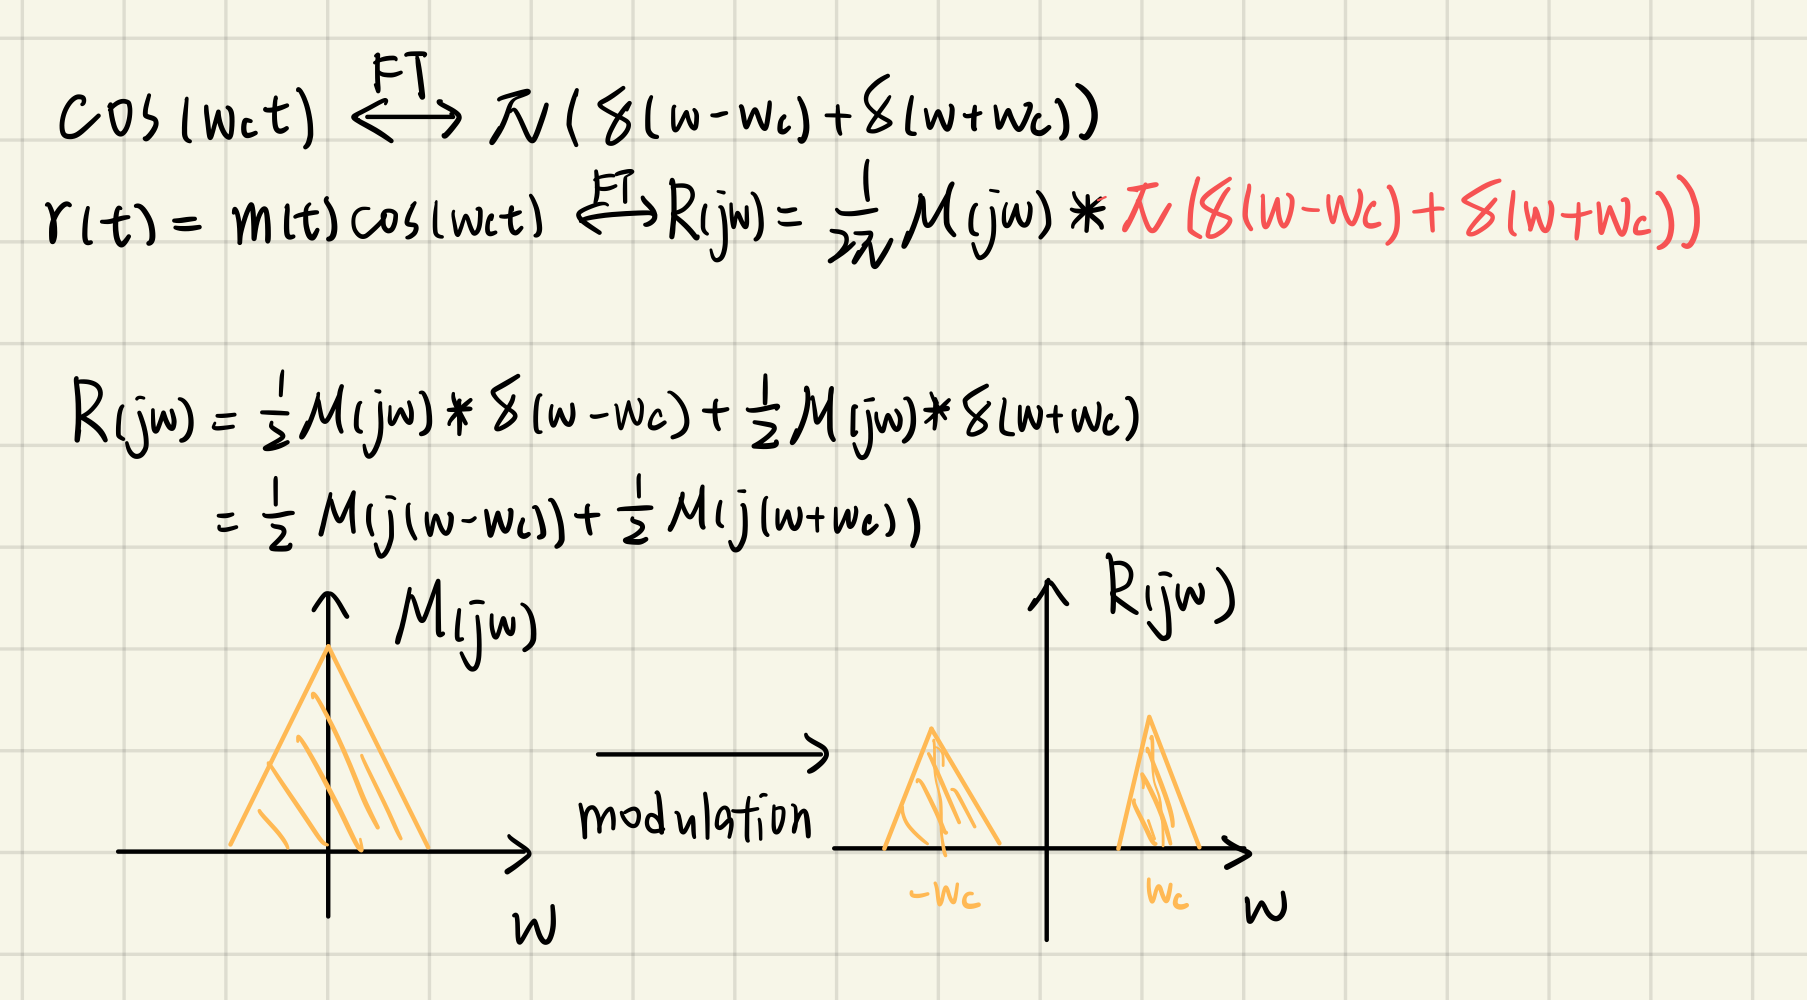 cos(wct) FT⟷ π(δ(w-wc)+δ(w+wc))
r(t) = m(t)cos(wct) FT⟷ R(jw) = 1/2π M(jw) * π(δ(w-wc)+δ(w+wc))
R(jw) = 1/2 M(jw) * δ(w-wc) + 1/2 M(jw) * δ(w+wc)
= 1/2 M(j(w-wc)) + 1/2 M(j(w+wc))
M(jw)
R(jw)
modulation
-wc
wc
w
w